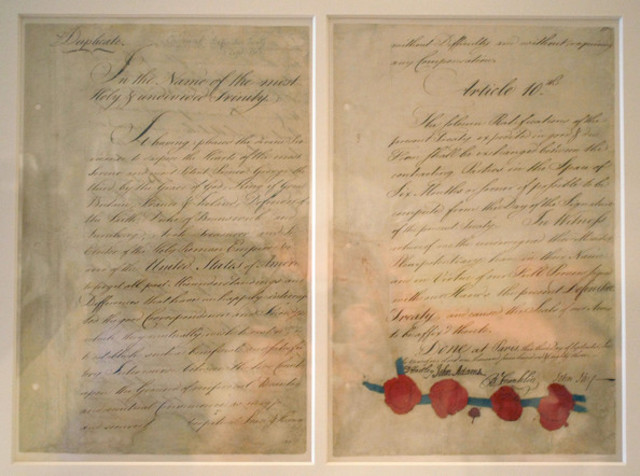 Duplicate.
In the Name of the most
Holy & undivided Trinity.
It having pleased the divine Pro
vidence to dispose the Hearts of the most
Serene and most Potent Prince George the
third, by the Grace of God, King of Great
Britain, France & Ireland, Defender of
the Faith, Duke of Brunswick and
Lunebourg, Arch Treasurer, and
Elector of the Holy Roman Empire
of the United States of America
to forget all past Misunderstandings and
Differences that have unhappily interrup
ted the good Correspondence and
which they mutually wish to
to establish such a beneficial and satisfac
tory Intercourse between the two
upon the Ground of reciprocal Advantages
and mutual Convenience as may
without Difficulty and without requiring
any Compensation.
Article 10th.
The solemn Ratifications of the
present Treaty expedited in good & due
Form shall be exchanged between the
contracting Parties in the Space of
Six Months or sooner if possible to be
computed from the Day of the Signature
of the present Treaty. In Witness
whereof we the undersigned their Ministers
Plenipotentiary have in their Name
and in Virtue of our Full Powers signed
with our Hands the present Definitive
Treaty, and caused the Seals of our Arms
to be affix'd thereto.
Done at Paris this third Day of September
D Hartley John Adams B Franklin John Jay